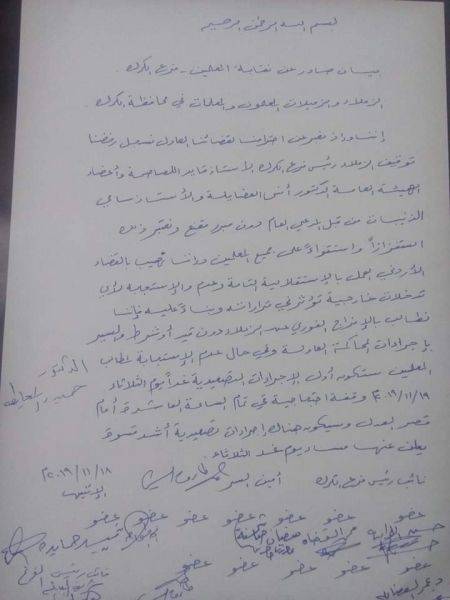 بسم الله الرحمن الرحيم
بيان صادر عن نقابة المعلمين - فرع الكرك.
الزملاء والزميلات المعلمون والمعلمات في محافظة الكرك
إننا وإذ نعبر عن احترامنا لقضائنا العادل نسجل رفضنا
توقيف الزملاء رئيس فرع الكرك الأستاذ قايد اللصاصمة وأعضاء
الهيئة العامة الدكتور أنس العضايلة والأستاذ سامي
الذنيبات من قبل المدعي العام دون مبرر مقنع ونعتبر ذلك
استفزازاً واستقواءً على جميع المعلمين وإننا نهيب بالقضاء
الأردني العمل بالاستقلالية التامة وعدم والاستجابة لأي
تدخلات خارجية تؤثر في قراراته وبناءً عليه فإننا
نطالب بالإفراج الفوري عن الزملاء دون قيد أو شرط والسير
بإجراءات المحاكمة العادلة وفي حال عدم الاستجابة لمطالب
المعلمين ستكون أولى الإجراءات التصعيدية غداً يوم الثلاثاء
٢٠١٩/١١/١٩ وقفة احتجاجية في تمام الساعة العاشرة أمام
قصر العدل وسيكون هناك إجراءات تصعيدية أشد قسوة
يعلن عنها مساء يوم غد الثلاثاء.
نائب رئيس فرع الكرك أمين السر ٢٠١٩/١١/١٨
الدكتور
الإثنين
عضو عضو عضو عضو عضو عضو
عضو عضو عضو عضو عضو